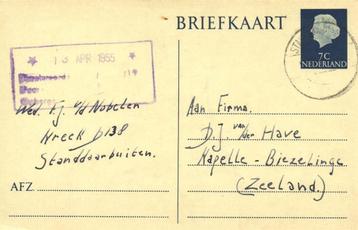 BRIEFKAART
7C
NEDERLAND
* 13 APR 1955 *
Wed. F.j. v/d Nobelen
Kreek D138
Standdaarbuiten.
AFZ.
Aan Firma.
D.J. van der Have
Kapelle - Biezelinge
(Zeeland).